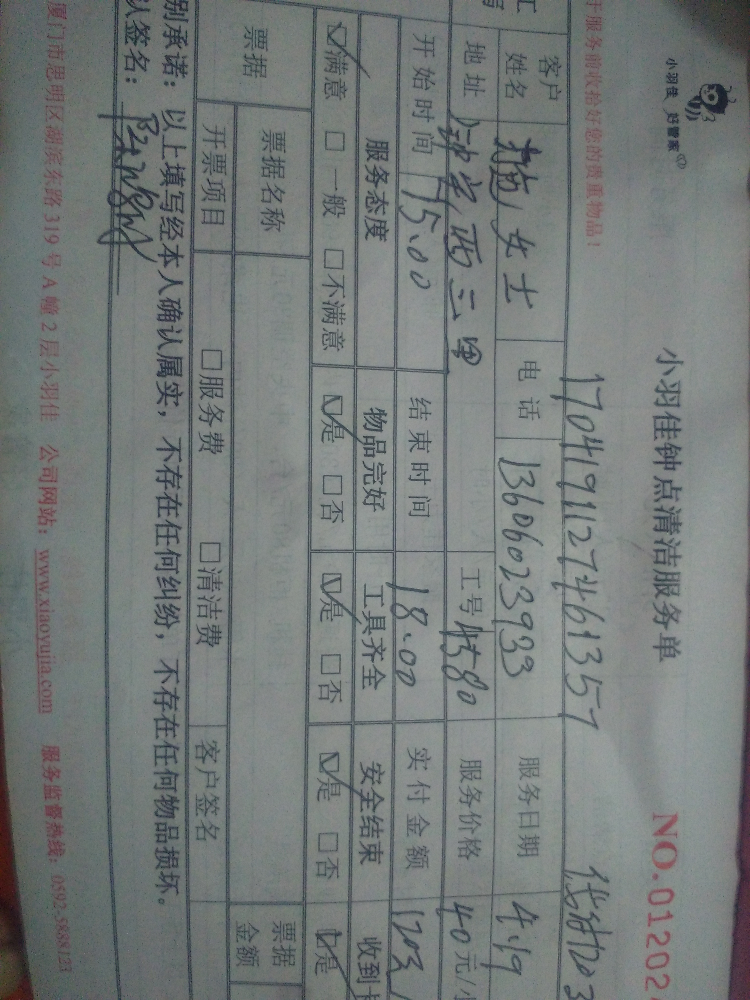 小羽佳 好管家
小羽佳钟点清洁服务单
NO.01202
于服务前收拾好您的贵重物品！
1704191127461357
客户姓名 施女士 电话 13606023933 服务日期 4.19
地址 西三里 工号 4580 服务价格 40元/
开始时间 15.00 结束时间 18.00 实付金额
服务态度 物品完好 工具齐全 安全结束 收到卡
☑满意 □一般 □不满意 ☑是 □否 ☑是 □否 ☑是 □否 ☑是
票据 票据名称 票据金额
开票项目 □服务费 □清洁费 客户签名
别承诺：以上填写经本人确认属实，不存在任何纠纷，不存在任何物品损坏。
认签名：
厦门市思明区湖滨东路319号A幢2层小羽佳 公司网站：www.xiaoyujia.com 服务监督热线：0592-5888123